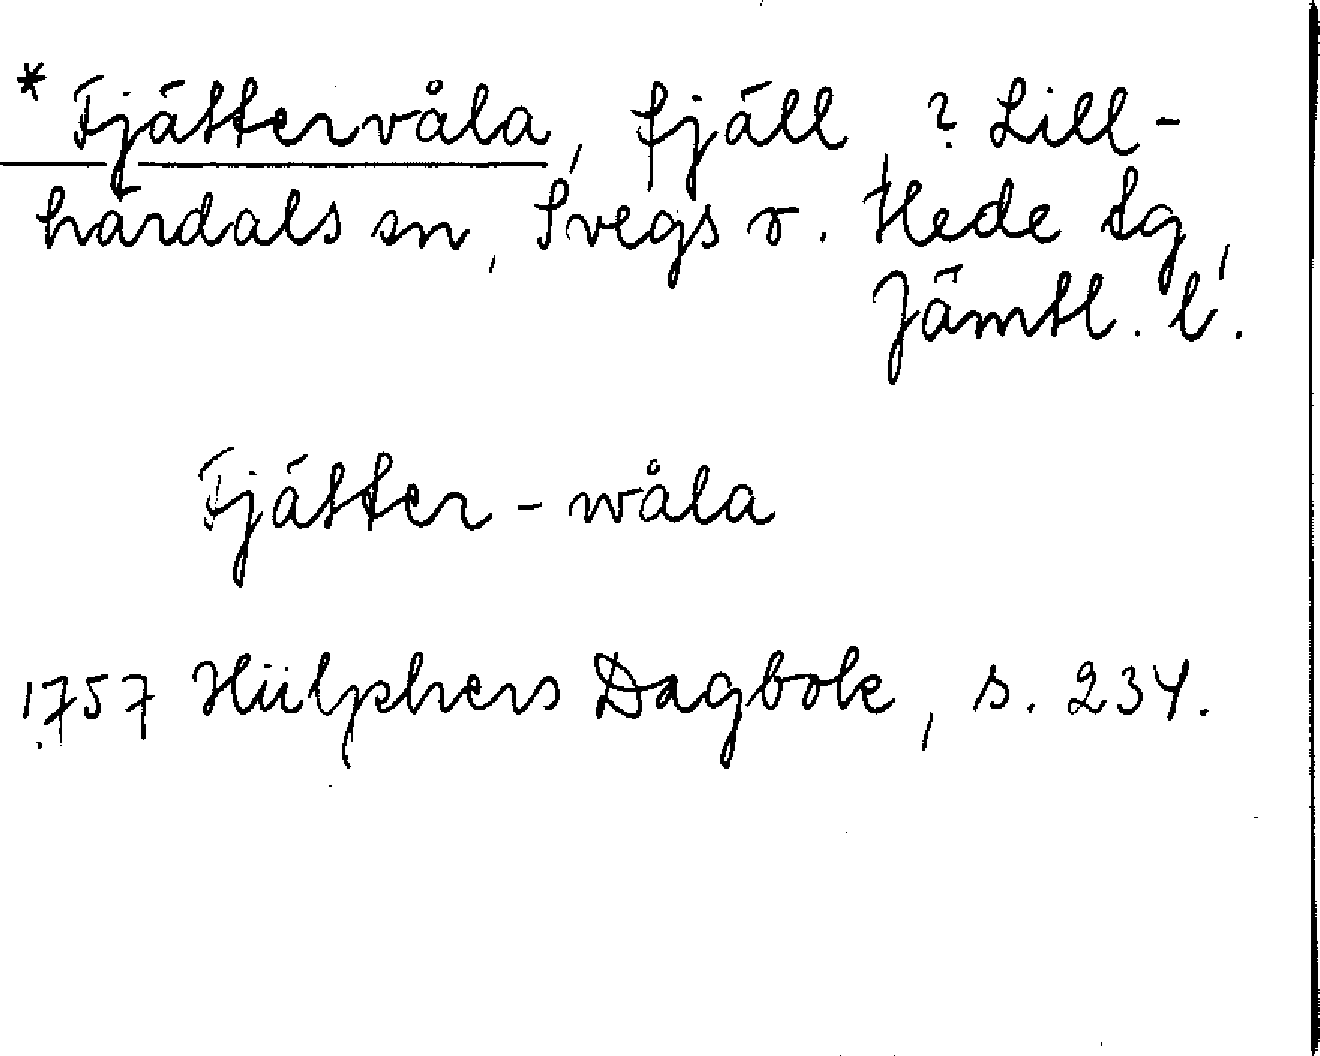 * Fjättervåla, fjäll, ? Lill-
härdals sn, Svegs o. Hede tg,
Jämtl. l.
Fjätter-wåla
1757 Hülphers Dagbok, s. 234.